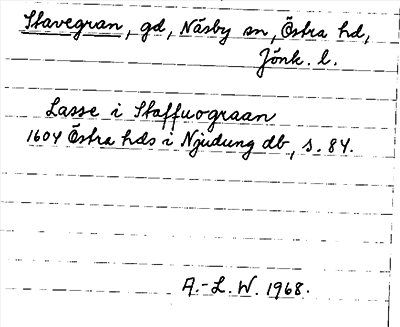 Stavegran, gd, Näsby sn, Östra hd,
Jönk. l.
Lasse i Staffuograan
1604 Östra hds i Njudung db, s. 84.
A.-L. W. 1968.